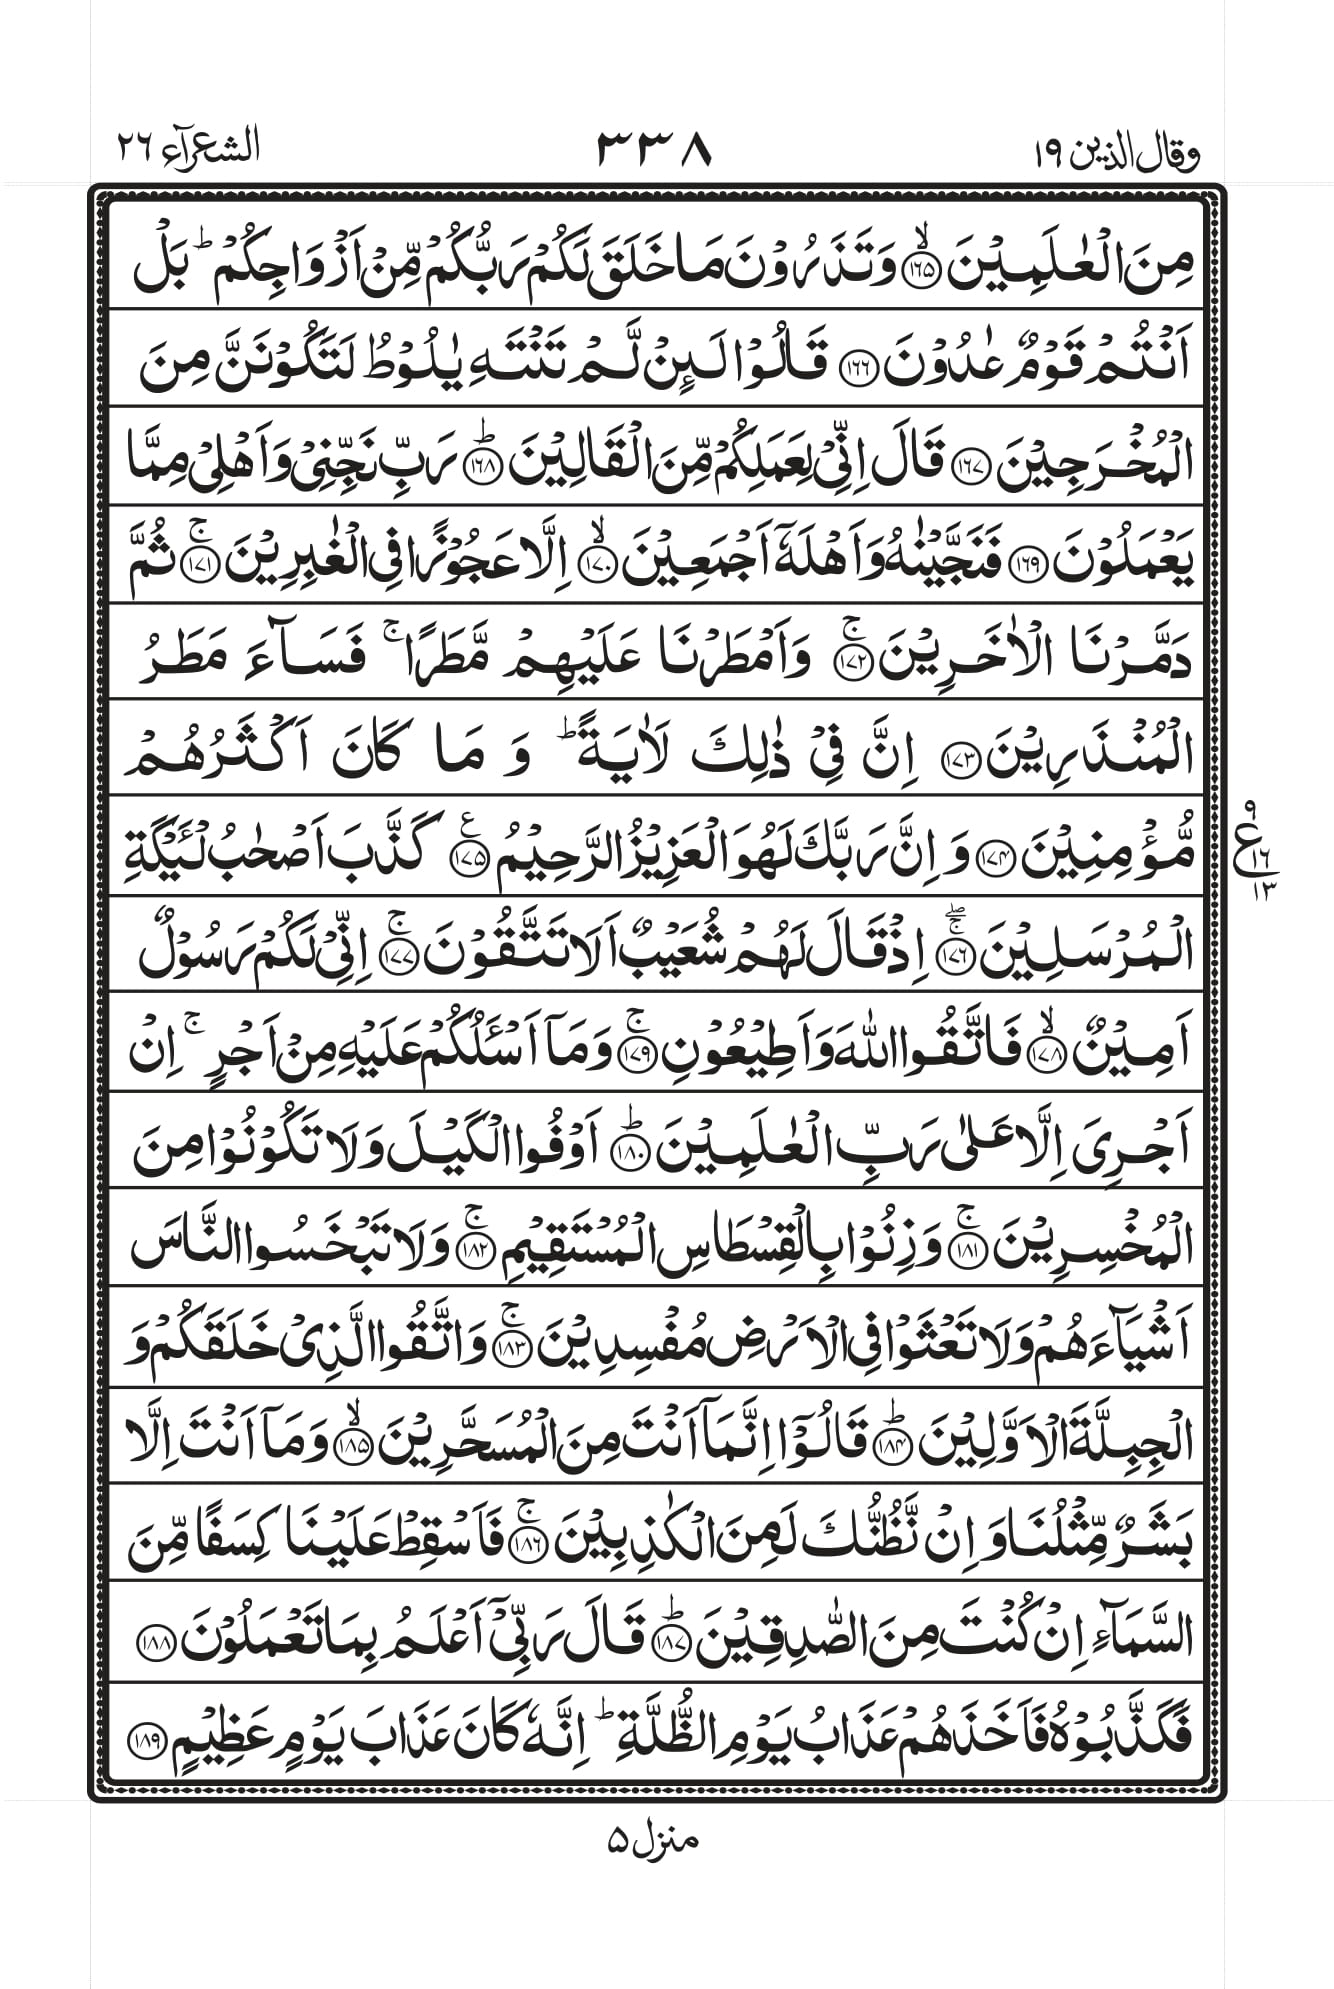 وقال الذین ۱۹ ۳۳۸ الشعرآء ۲۶
مِنَ الْعٰلَمِيْنَ ۙ‏﴿۱۶۵﴾ وَتَذَرُوْنَ مَا خَلَقَ لَكُمْ رَبُّكُمْ مِّنْ اَزْوَاجِكُمْ ؕ بَلْ
اَنْتُمْ قَوْمٌ عٰدُوْنَ ﴿۱۶۶﴾ قَالُوْا لَئِنْ لَّمْ تَنْتَهِ يٰلُوْطُ لَتَكُوْنَنَّ مِنَ
الْمُخْرَجِيْنَ ﴿۱۶۷﴾ قَالَ اِنِّيْ لِعَمَلِكُمْ مِّنَ الْقَالِيْنَ ؕ﴿۱۶۸﴾ رَبِّ نَجِّنِيْ وَاَهْلِيْ مِمَّا
يَعْمَلُوْنَ ﴿۱۶۹﴾ فَنَجَّيْنٰهُ وَاَهْلَهٗۤ اَجْمَعِيْنَ ۙ﴿۱۷۰﴾ اِلَّا عَجُوْزًا فِي الْغٰبِرِيْنَ ۚ﴿۱۷۱﴾ ثُمَّ
دَمَّرْنَا الْاٰخَرِيْنَ ۚ﴿۱۷۲﴾ وَاَمْطَرْنَا عَلَيْهِمْ مَّطَرًا ۚ فَسَآءَ مَطَرُ
الْمُنْذَرِيْنَ ﴿۱۷۳﴾ اِنَّ فِيْ ذٰلِكَ لَاٰيَةً ؕ وَ مَا كَانَ اَكْثَرُهُمْ
مُّؤْمِنِيْنَ ﴿۱۷۴﴾ وَ اِنَّ رَبَّكَ لَهُوَ الْعَزِيْزُ الرَّحِيْمُ ﴿۱۷۵﴾ ع كَذَّبَ اَصْحٰبُ لْئَيْكَةِ
۹ ع ۱۶ ۱۳
الْمُرْسَلِيْنَ ۚۖ﴿۱۷۶﴾ اِذْ قَالَ لَهُمْ شُعَيْبٌ اَلَا تَتَّقُوْنَ ۚ﴿۱۷۷﴾ اِنِّيْ لَكُمْ رَسُوْلٌ
اَمِيْنٌ ۙ﴿۱۷۸﴾ فَاتَّقُوا اللّٰهَ وَاَطِيْعُوْنِ ۚ﴿۱۷۹﴾ وَمَاۤ اَسْـَٔلُكُمْ عَلَيْهِ مِنْ اَجْرٍ ۚ اِنْ
اَجْرِيَ اِلَّا عَلٰى رَبِّ الْعٰلَمِيْنَ ؕ﴿۱۸۰﴾ اَوْفُوا الْكَيْلَ وَلَا تَكُوْنُوْا مِنَ
الْمُخْسِرِيْنَ ۚ﴿۱۸۱﴾ وَزِنُوْا بِالْقِسْطَاسِ الْمُسْتَقِيْمِ ۚ﴿۱۸۲﴾ وَلَا تَبْخَسُوا النَّاسَ
اَشْيَآءَهُمْ وَلَا تَعْثَوْا فِي الْاَرْضِ مُفْسِدِيْنَ ۚ﴿۱۸۳﴾ وَاتَّقُوا الَّذِيْ خَلَقَكُمْ وَ
الْجِبِلَّةَ الْاَوَّلِيْنَ ؕ﴿۱۸۴﴾ قَالُوْۤا اِنَّمَاۤ اَنْتَ مِنَ الْمُسَحَّرِيْنَ ۙ﴿۱۸۵﴾ وَمَاۤ اَنْتَ اِلَّا
بَشَرٌ مِّثْلُنَا وَ اِنْ نَّظُنُّكَ لَمِنَ الْكٰذِبِيْنَ ۚ﴿۱۸۶﴾ فَاَسْقِطْ عَلَيْنَا كِسَفًا مِّنَ
السَّمَآءِ اِنْ كُنْتَ مِنَ الصّٰدِقِيْنَ ؕ﴿۱۸۷﴾ قَالَ رَبِّيْۤ اَعْلَمُ بِمَا تَعْمَلُوْنَ ﴿۱۸۸﴾
فَكَذَّبُوْهُ فَاَخَذَهُمْ عَذَابُ يَوْمِ الظُّلَّةِ ؕ اِنَّهٗ كَانَ عَذَابَ يَوْمٍ عَظِيْمٍ ﴿۱۸۹﴾
منزل ۵